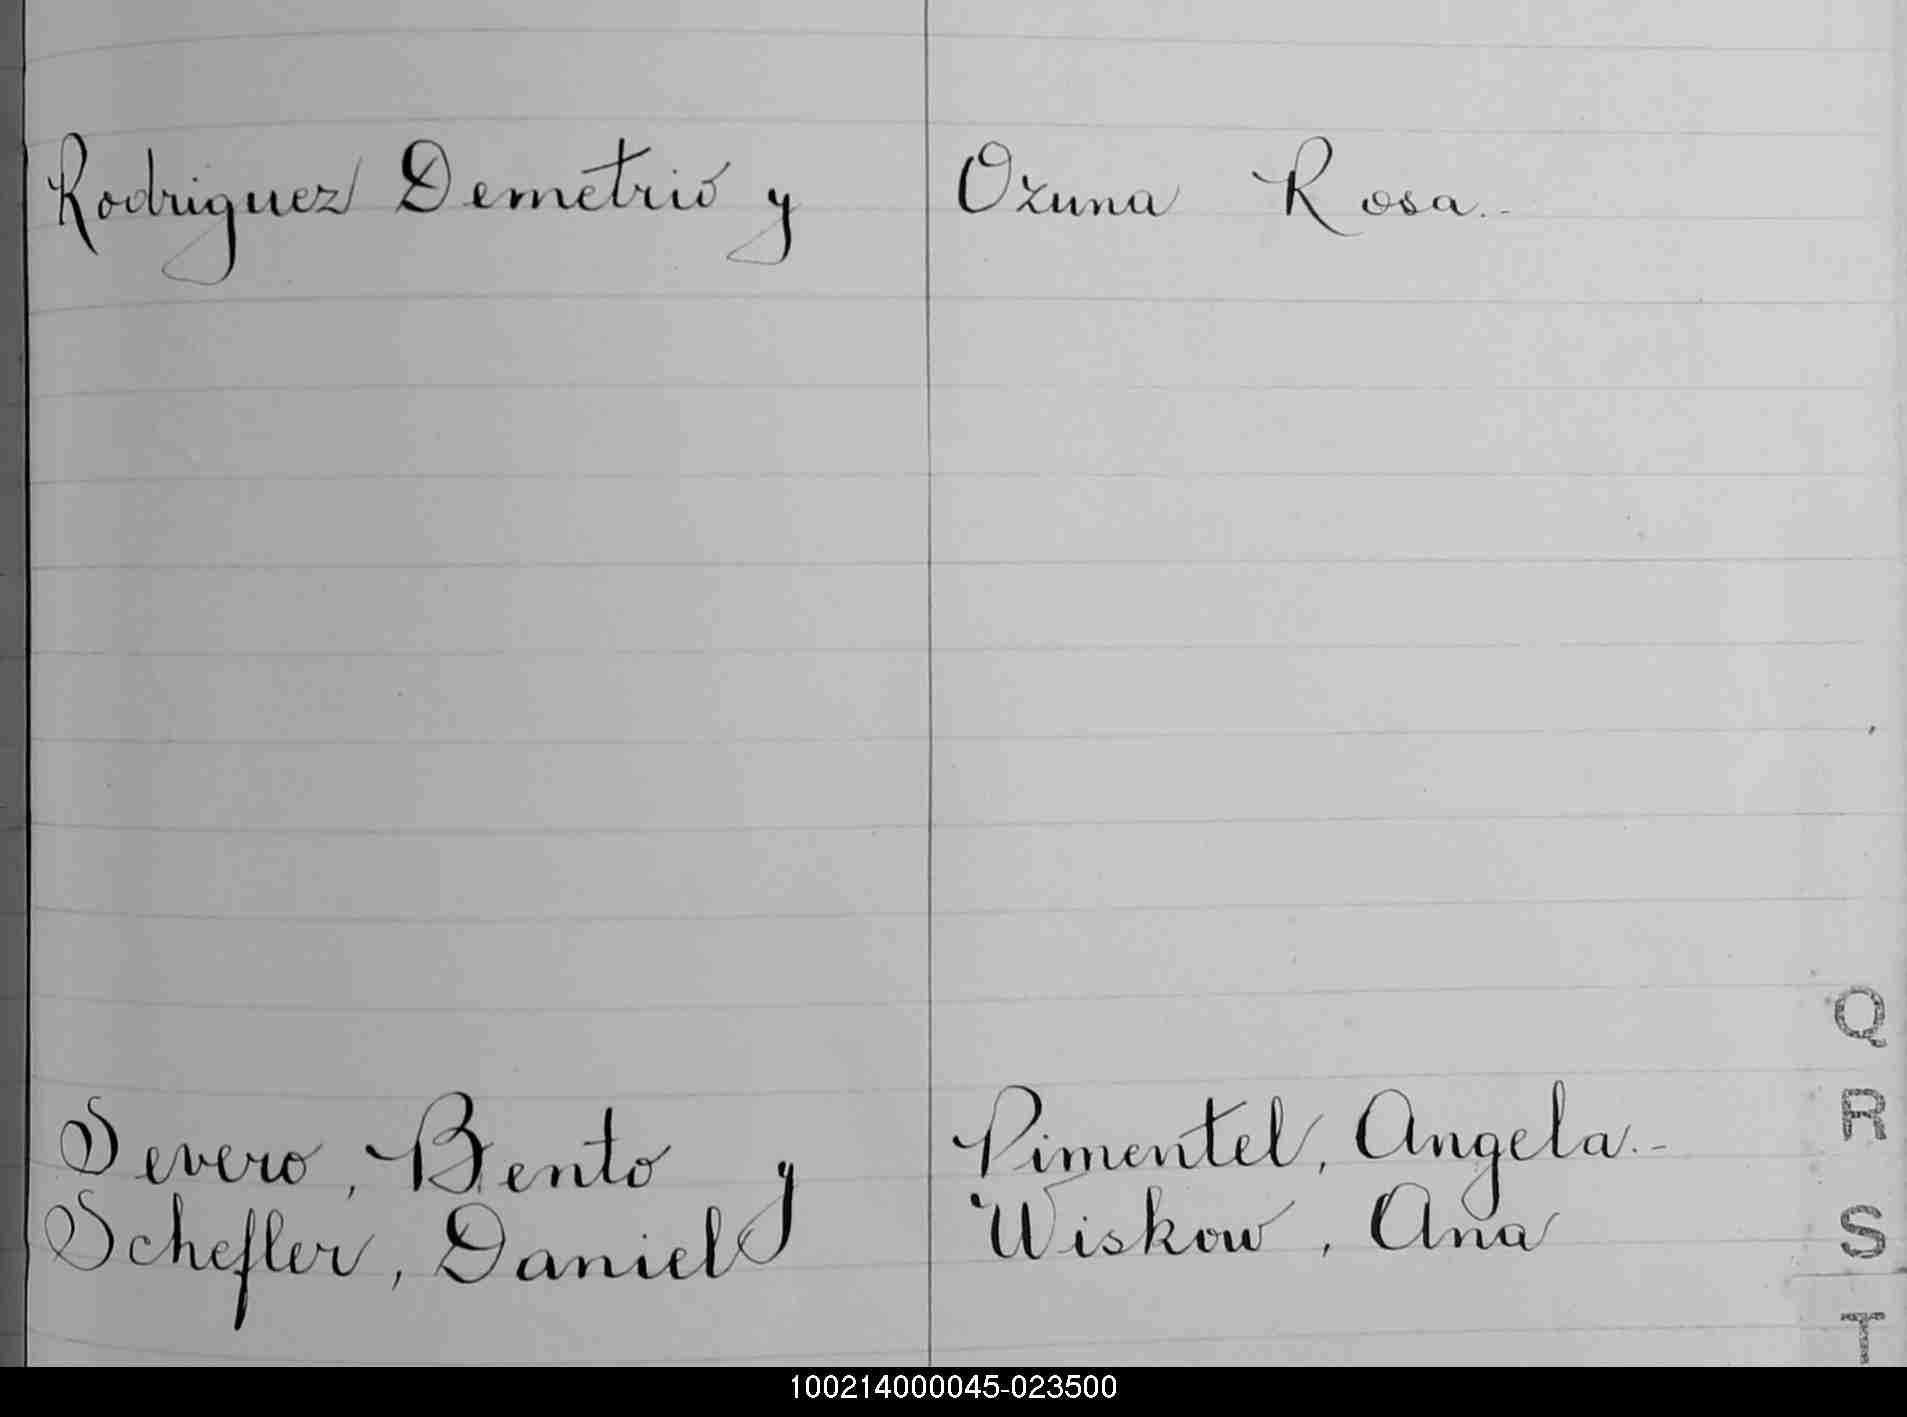 Rodriguez Demetrio y Ozuna Rosa.-
Severo, Bento y Pimentel, Angela.-
Schefler, Daniel Wiskow, Ana
Q
R
S
T
100214000045-023500